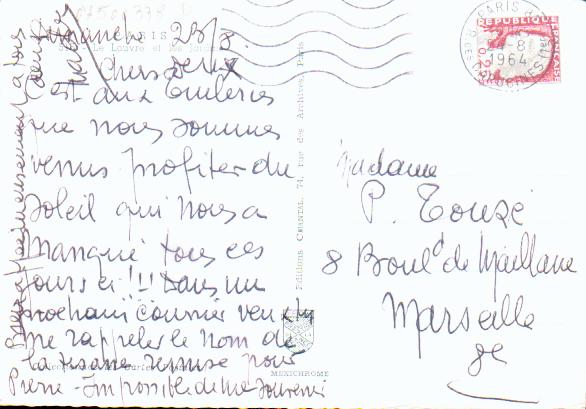 PARIS
Le Louvre et les Jardins
Dimanche 23/8
Chers
C'est aux Tuileries
que nous sommes
venus profiter du
soleil qui nous a
manqué tous ces
jours ci !! Dans un
prochain courrier veux tu
me rappeler le nom de
la tisane remise pour
Pierre - Impossible de me souvenir
à tous
Editions CHANTAL, 74, rue des Archives, Paris
MEXICHROME
PARIS
-8
1964
REPUBLIQUE
FRANÇAISE
Madame
P. Touzé
8 Boul^d de Maillane
Marseille
8e